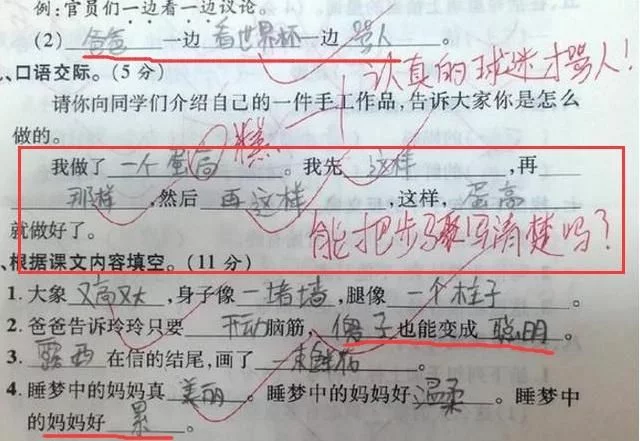 例:官员们一边看一边议论。
(2) 爸爸 一边 看世界杯 一边 骂人 。
认真的球迷才骂人!
、口语交际。(5 分)
请你向同学们介绍自己的一件手工作品,告诉大家你是怎么
做的。
糕
我做了 一个蛋高 。我先 这样 ,再
那样 ,然后 再这样 ,这样, 蛋高
就做好了。
能把步骤写清楚吗?
、根据课文内容填空。(11 分)
1. 大象 又高又大 ,身子像 一堵墙 ,腿像 一个柱子 。
2. 爸爸告诉玲玲只要 开动 脑筋, 傻子 也能变成 聪明 。
3. 露西 在信的结尾,画了 一束鲜花 。
4. 睡梦中的妈妈真 美丽 。睡梦中的妈妈好 温柔 。睡梦中
的妈妈好 累 。